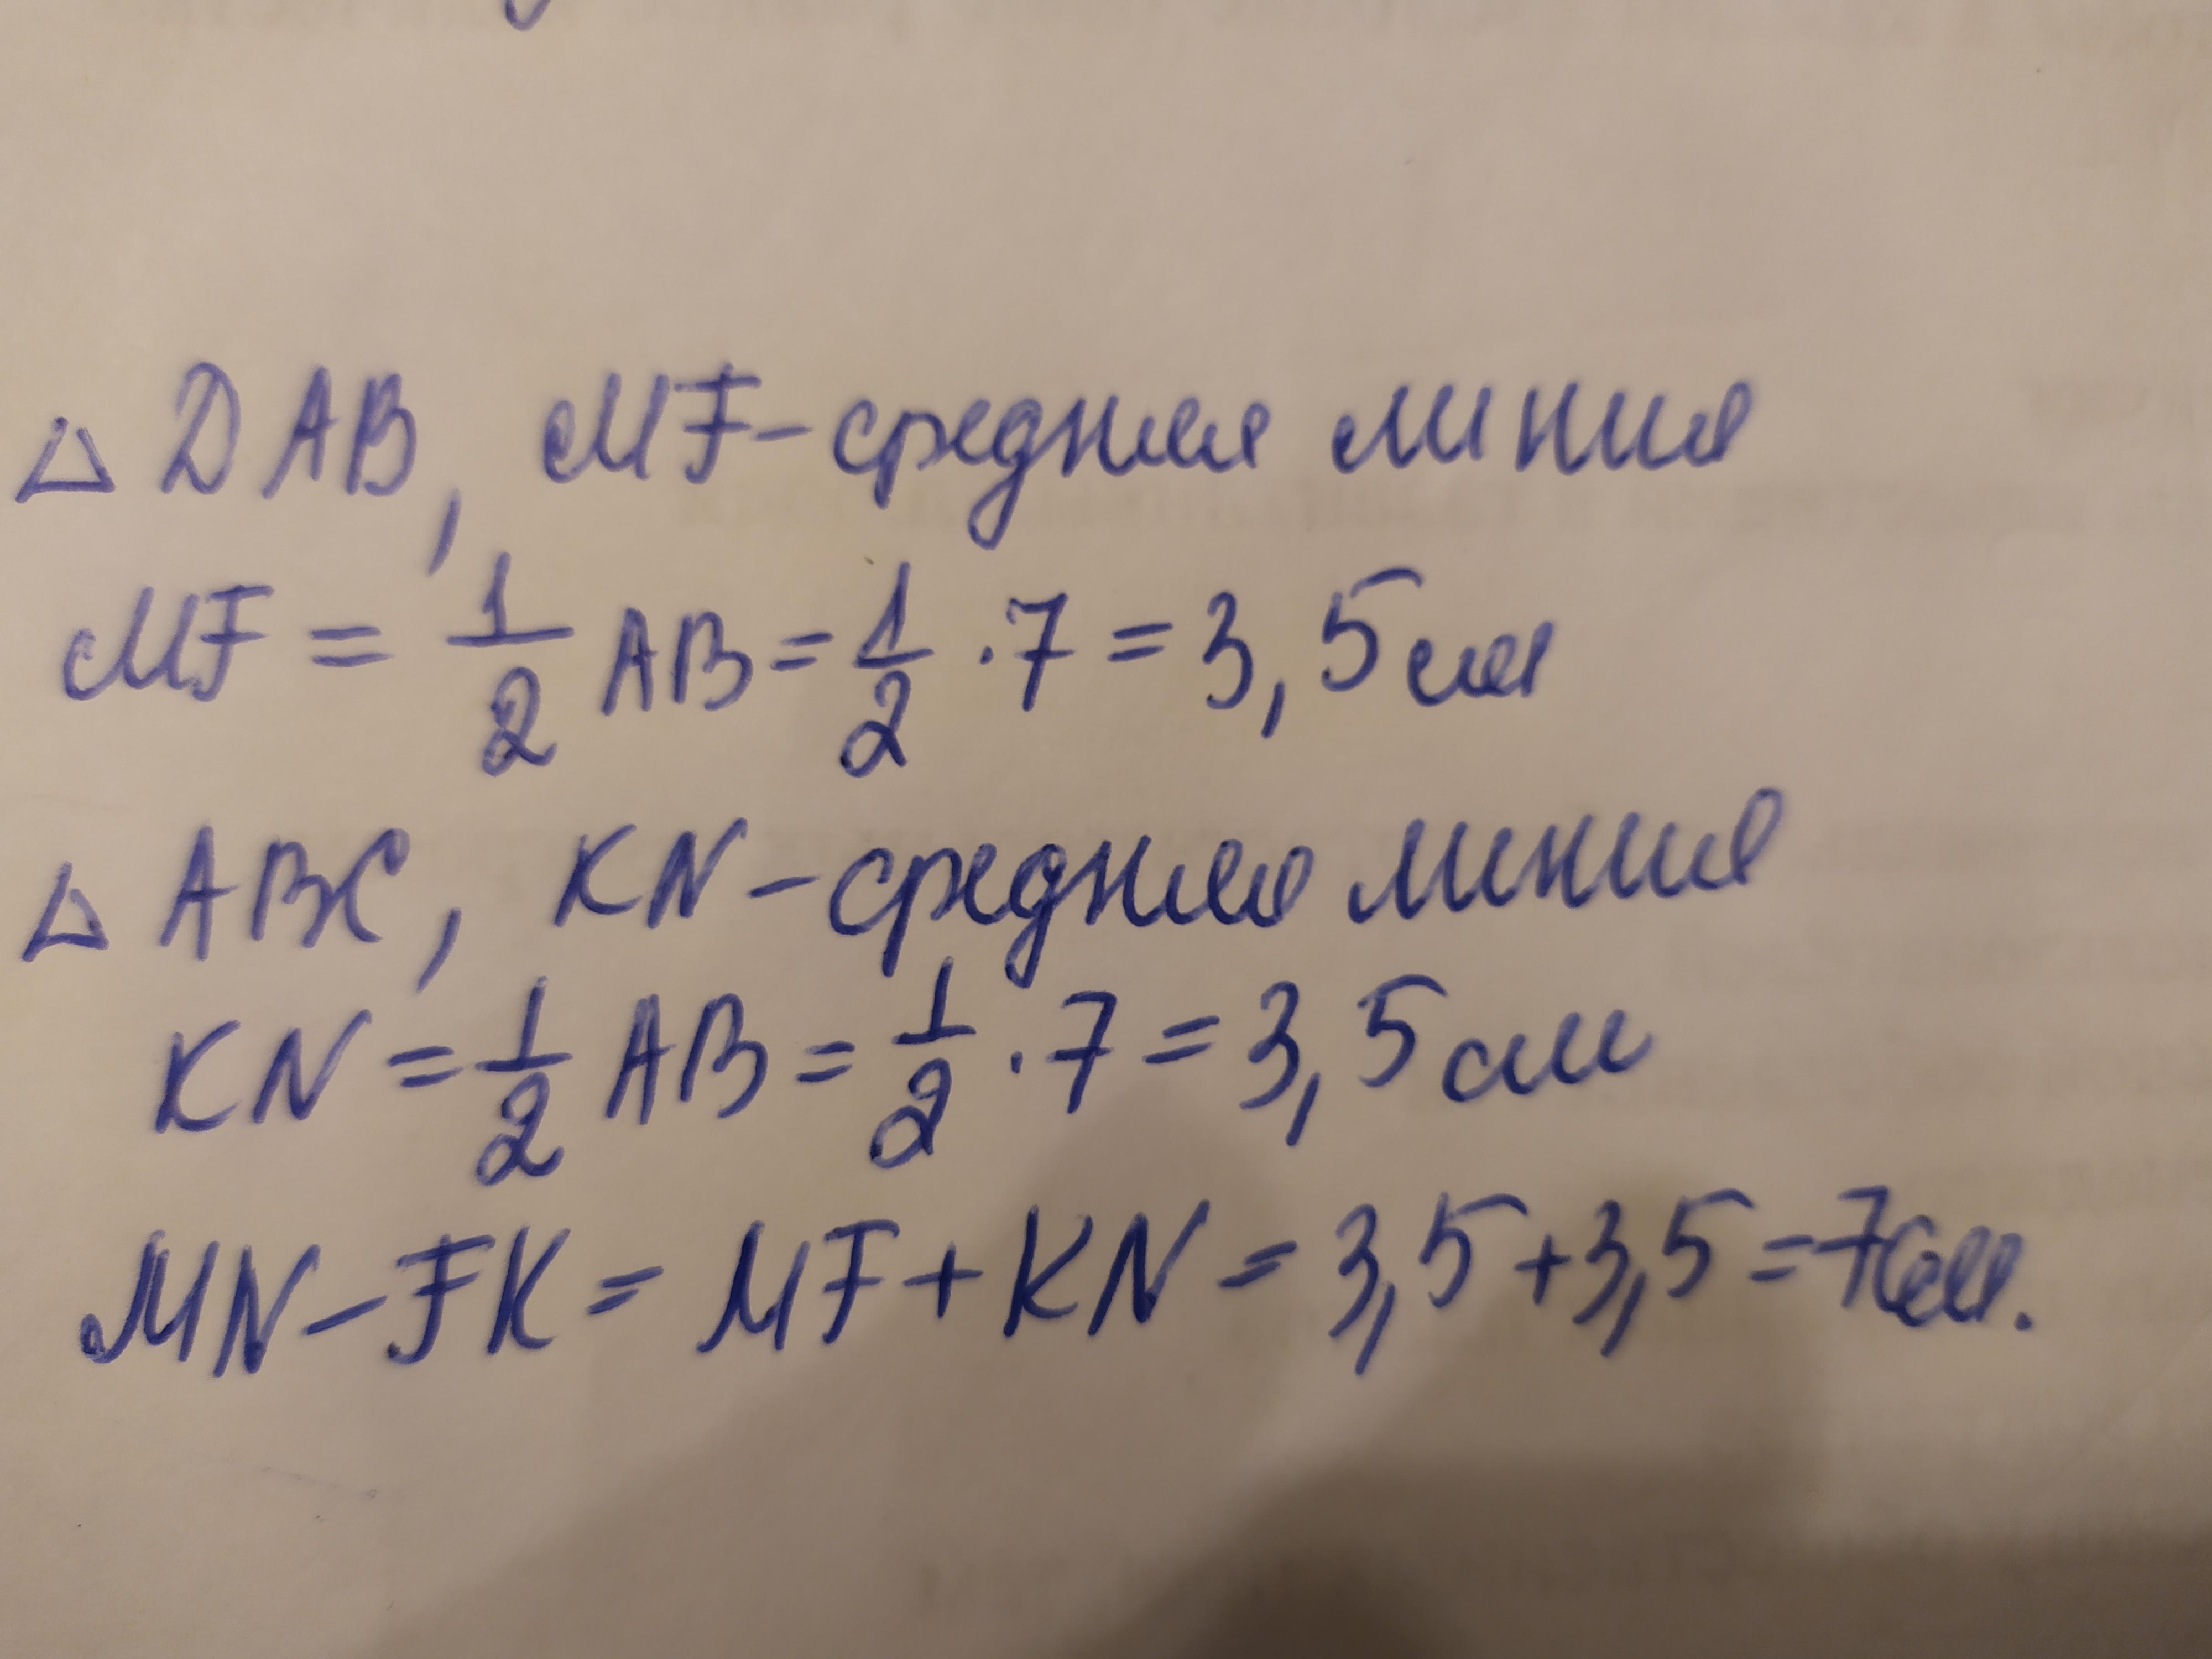 △ DAB, MF - средняя линия
MF = 1/2 AB = 1/2 · 7 = 3,5 см
△ ABC, KN - средняя линия
KN = 1/2 AB = 1/2 · 7 = 3,5 см
MN - FK = MF + KN = 3,5 + 3,5 = 7 см.